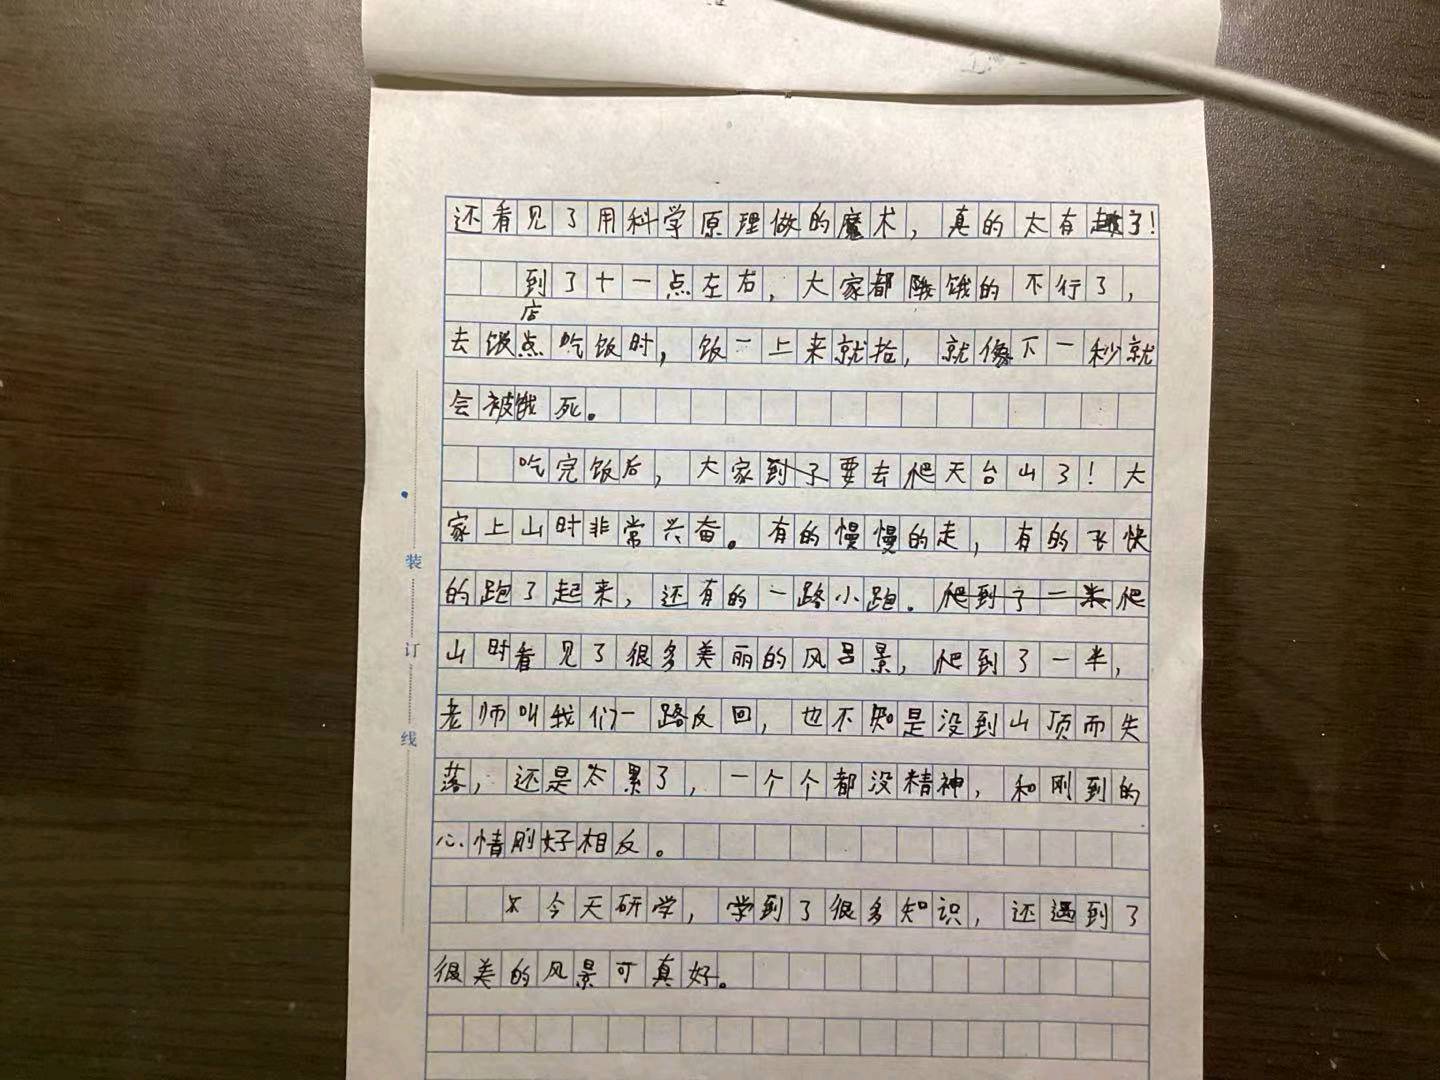 还看见了用科学原理做的魔术，真的太有趣了！
到了十一点左右，大家都饿的不行了，
店
去饭点吃饭时，饭一上来就抢，就像下一秒就
会被饿死。
吃完饭后，大家到了要去爬天台山了！大
家上山时非常兴奋。有的慢慢的走，有的飞快
的跑了起来，还有的一路小跑．爬到了一米爬
山时看见了很多美丽的风景，爬到了一半，
老师叫我们一路反回，也不知是没到山顶而失
落，还是太累了，一个个都没精神，和刚到的
心情刚好相反。
今天研学，学到了很多知识，还遇到了
很美的风景可真好。
装
订
线